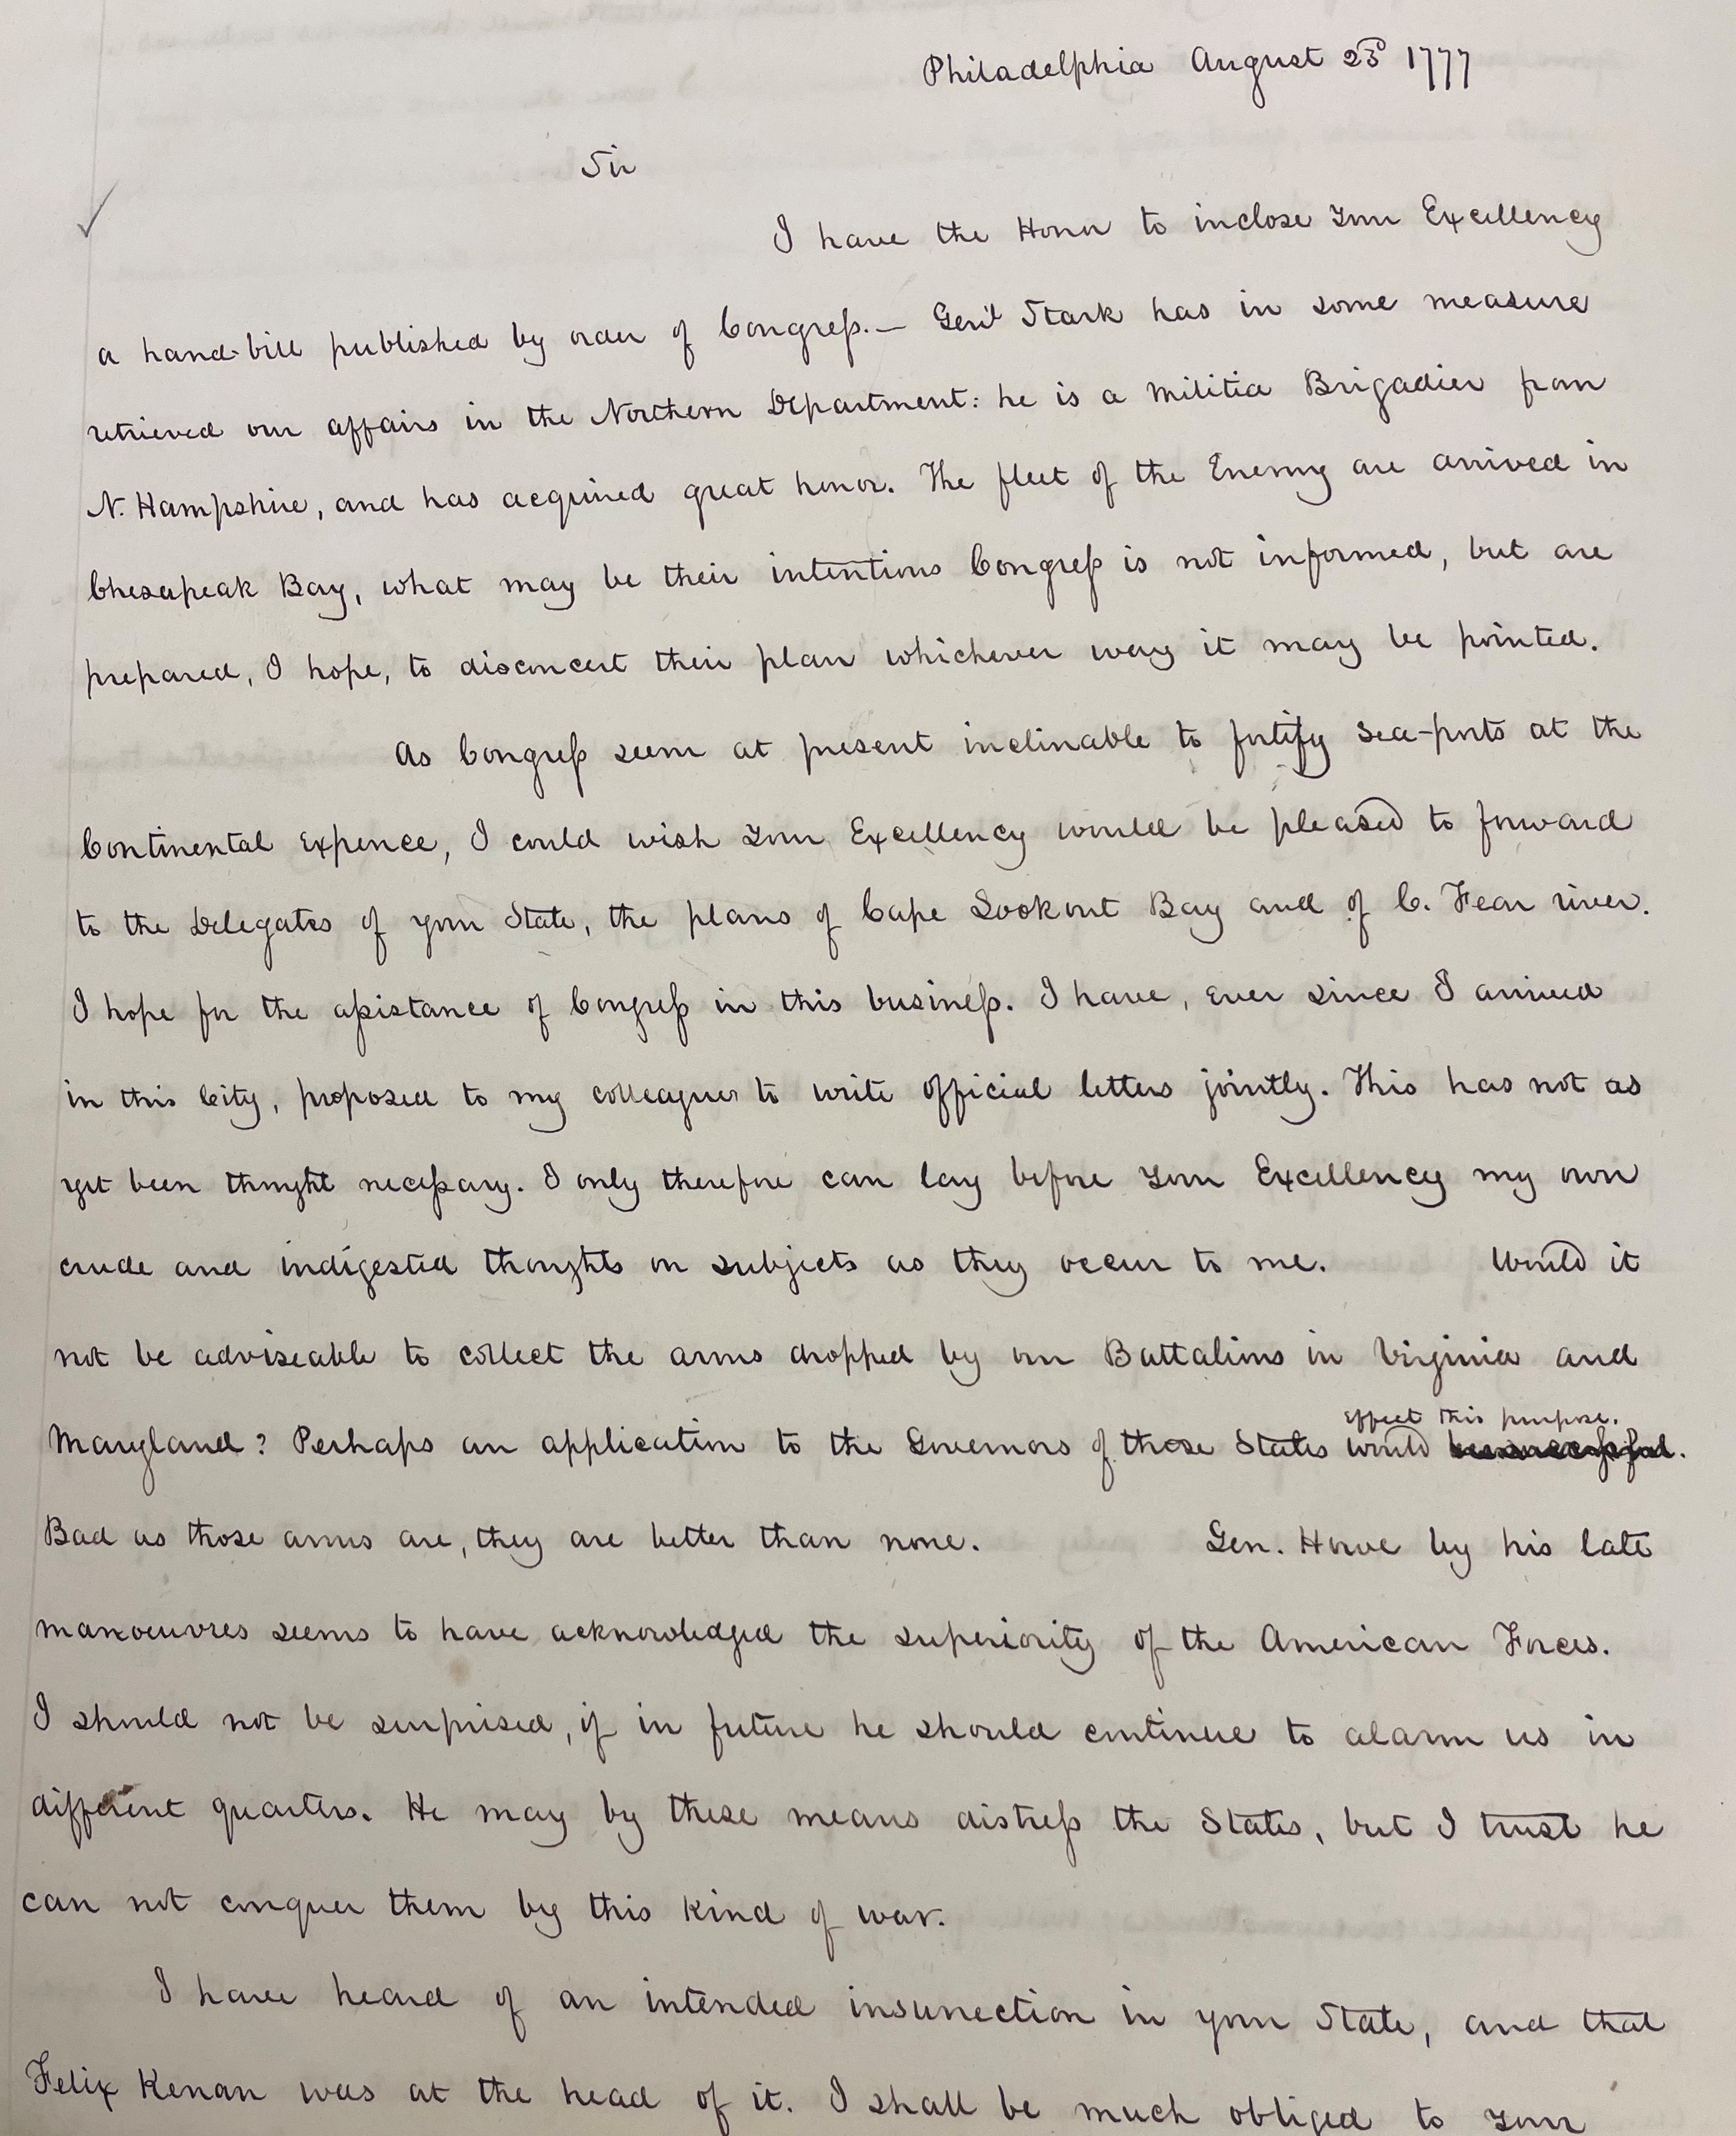 Philadelphia August 23d 1777
Sir
I have the Honor to inclose Your Excellency
a hand-bill published by order of Congress.— Genl Stark has in some measure
retrieved our affairs in the Northern Department: he is a Militia Brigadier from
N. Hampshire, and has acquired great honor. The fleet of the Enemy are arrived in
Chesapeak Bay, what may be their intentions Congress is not informed, but are
prepared, I hope, to disconcert their plan whichever way it may be pointed.
As Congress seem at present inclinable to fortify sea-ports at the
Continental Expence, I could wish Your Excellency would be pleased to forward
to the Delegates of your State, the plans of Cape Lookout Bay and of C. Fear river.
I hope for the assistance of Congress in this business. I have, ever since I arrived
in this City, proposed to my colleagues to write official letters jointly. This has not as
yet been thought necessary. I only therefore can lay before Your Excellency my own
crude and indigested thoughts on subjects as they occur to me. Would it
not be adviseable to collect the arms dropped by our Battalions in Virginia and
effect this purpose.
Maryland? Perhaps an application to the Governors of those States would be successful.
Bad as those arms are, they are better than none. Gen. Howe by his late
manoeuvres seems to have acknowledged the superiority of the American Forces.
I should not be surprised, if in future he should continue to alarm us in
different quarters. He may by these means distress the States, but I trust he
can not conquer them by this kind of war.
I have heard of an intended insurrection in your State, and that
Felix Kenan was at the head of it. I shall be much obliged to Your